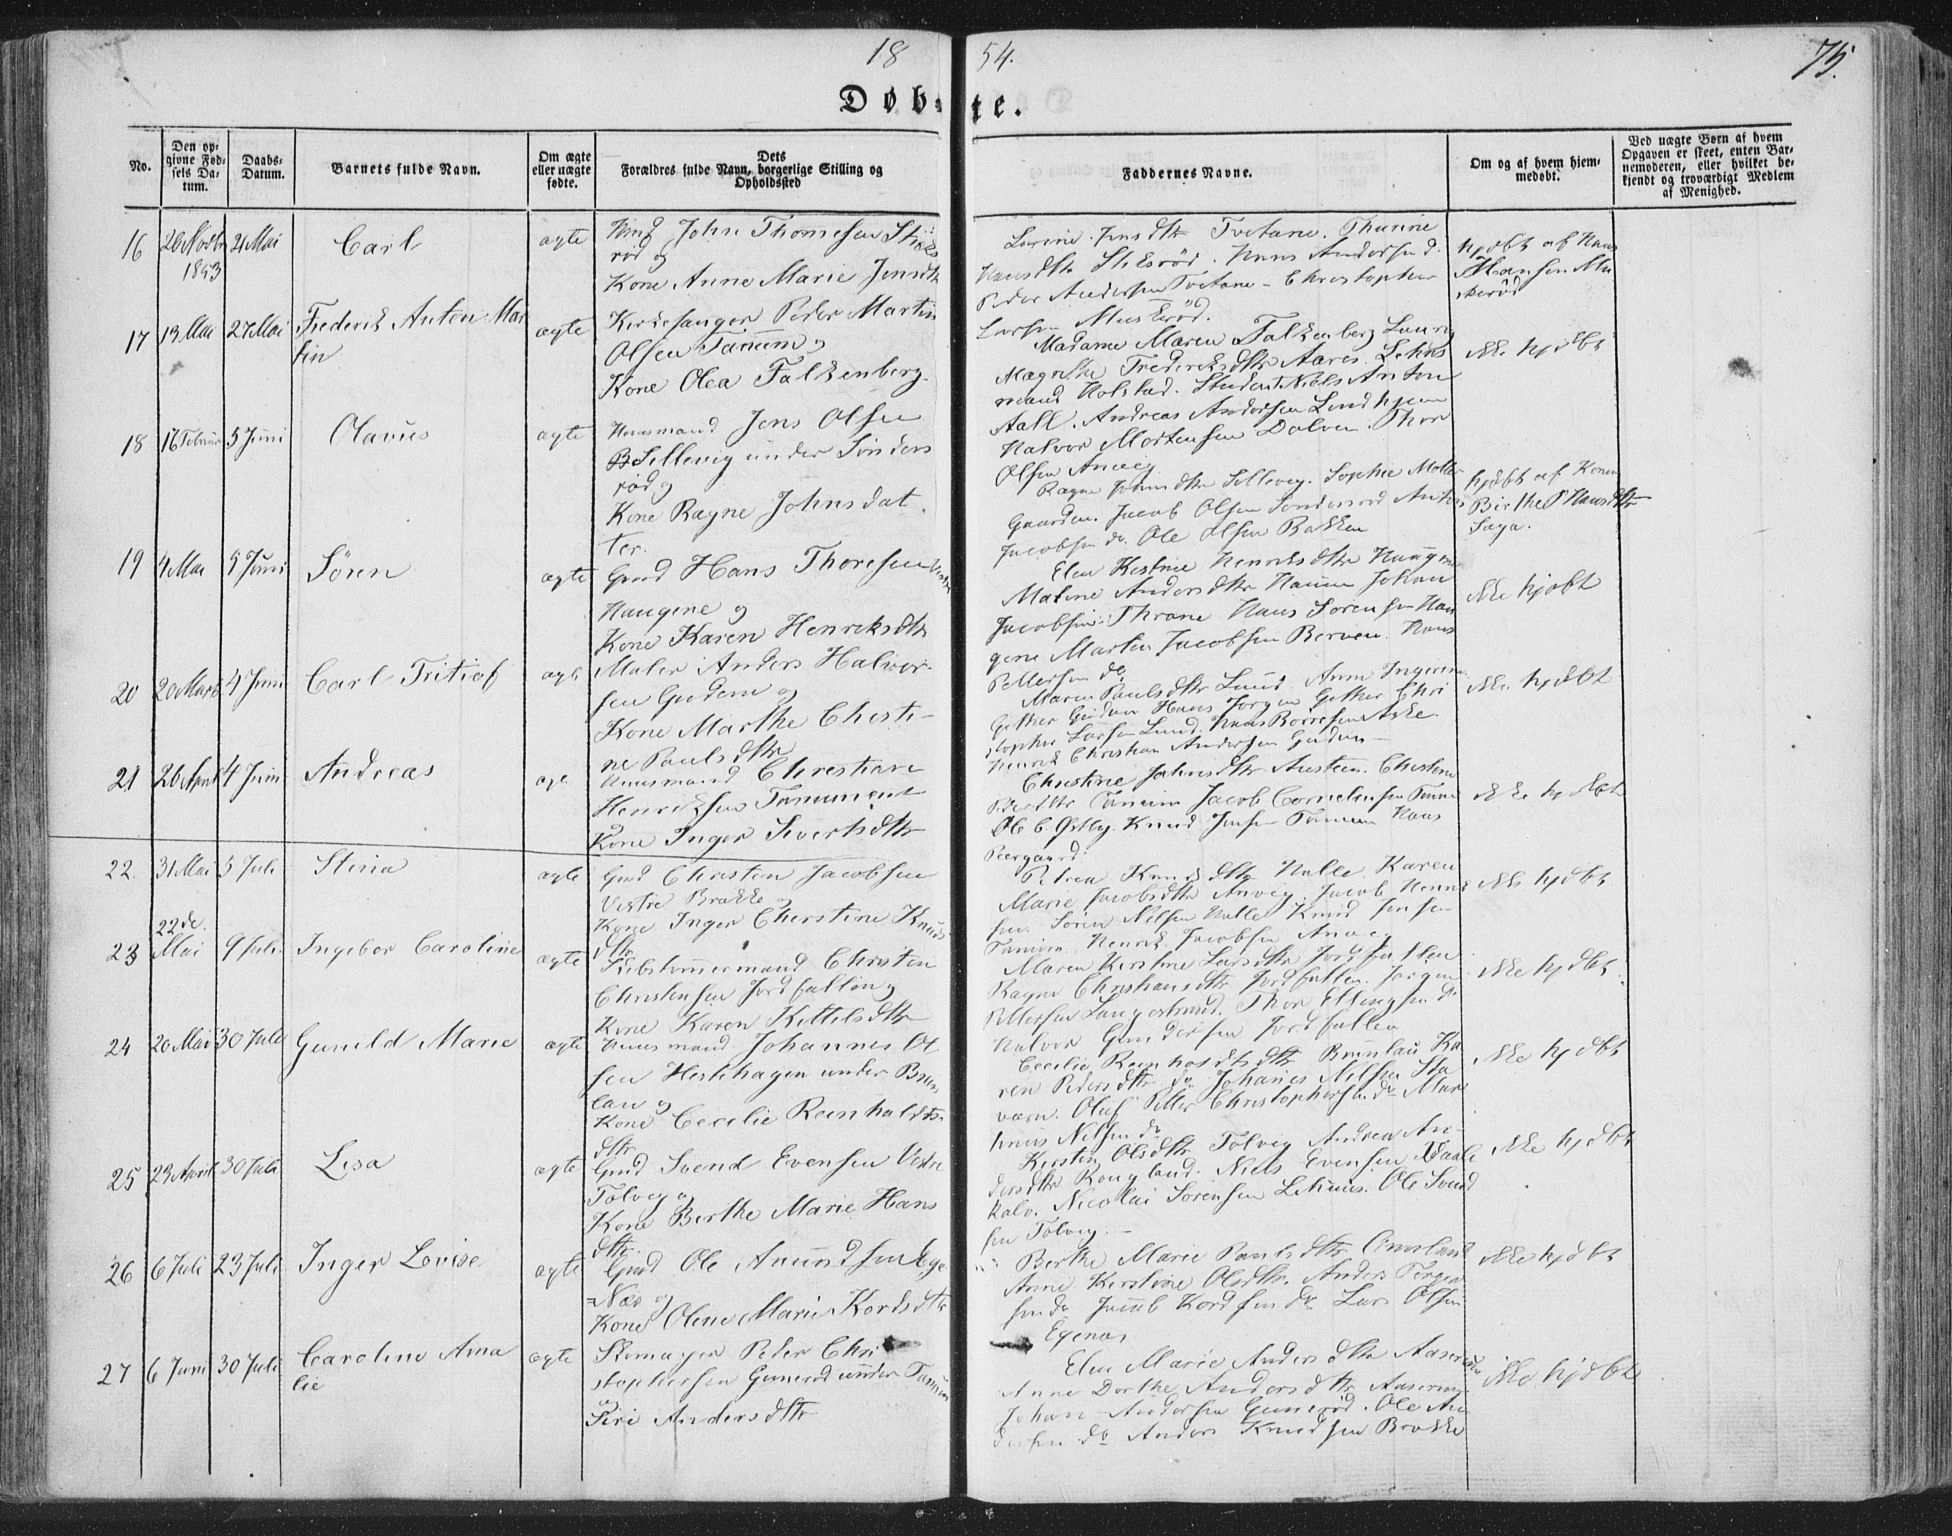 18 54.
75.
Døbte.
No.
Den opgivne Fødsels Datum.
Daabs-Datum.
Barnets fulde Navn.
Om ægte eller uægte fødte.
Dets Forældres fulde Navn, borgerlige Stilling og Opholdssted
Faddernes Navne.
Om og af hvem hjemmedøbt.
Ved uægte Børn af hvem Opgaven er skeet, enten Barnemoderen, eller hvilket bekjendt og troværdigt Medlem af Menighed.
16 26 Novbr 1853 21 Mai Carl ægte
John Thomesen
rød og
Kone Anne Marie Jensdtr
Hansdtr Andersen
Peder Andersen Tvetane - Christopher
Larsen Muskerød.
hjdbt af Hans
Hansen Mu
skerød
17 13 Mai 27 Mai Frederik Anton Mar
tin
ægte
Kirkesanger Peder Martin
Olsen Tanum og
Kone Olea Falkenberg.
Madame Maren Falkenberg
Magrethe Frederiksdtr Aares.
mand Holstad. Student Niels Anton
Aall. Andreas Andersen Lindhjem
Halvor Mortensen Dolven. Thor
Olsen Anveg
ikke hjdbt
18 16 Februar 5 Juni Olavus ægte
Huusmand Jens Olsen
Sillevig under Sønders
rød og
Kone Ragne Johnsdat
ter.
Sillevig. Sophie Møller
Gaarden. Jacob Olsen Sondersrod
Jacobsen do Ole Olsen Bakken
hjdbt af Konen
Birthe Hansdtr
Saga.
19 4 Mai 5 Juni Sören ægte
Gmd Hans Thoresen
Haugene og
Kone Karen Henriksdtr
Elen Kirstine Henriksdtr Haugene
Maline Andersdtr Haune Johan
Jacobsen Thrane Hans Sorensen Hau
gene Martin Jacobsen Berven. Hans
Pettersen do
ikke hjdbt
20 20 Marts 4 Juni Carl Fritiof ægte
Maler Anders Halvor
sen Guden og
Kone Marthe Christi-
ne Paulsdtr
Maren Paulsdtr Lund. Anne
Hans Jørgen Chri
stopher Larsen Lund.
Henrik Christian Andersen Guden
ikke hjdbt
21 26 April 4 Juni Andreas ægte
Huusmand Christian
Henriksen Tanum og
Kone Inger Sivertsdtr
Christine Jahnsdtr Austeen. Christine
Tanum Jacob Cornelius
Ole C. Østby. Knud Jensen Tanum Hans
Peergaard.
ikke hjdbt
22. 31 Mai 3 Juli Stina ægte
Gmd Christen Jacobsen
Vestre Brække og
Kone Inger Christine Knuds
dtr
Petrea Knudsdtr Halle. Karen
Marie Jacobsdtr Anveg. Jacob
sen. Sören Nilsen Halle Knud Jensen
Tanum. Henrik Jacobsen Anveg
ikke hjdbt
23 22de. Mai 9 Juli Ingebor Caroline ægte
Skibstømmermand Christen
Christensen Jordfalden og
Kone Karen Kittelsdtr
Maren Kirstine Larsdtr Jordfallen
Ragne Christiansdtr Jordfallen. Jørgen
Pettersen Langestrand. Thor Ellingsen do
Halvor Gundersen Jordfallen
ikke hjdbt
24 20 Mai 30 Juli Gunild Marie ægte
Huusmand Johannes Ol
sen Hestehagen under Brun
lau og
Kone Cecilie Reinholdts
dtr
Cecilie Reinholdtsdtr Brunlau Ka
ren Pedersdtr do Johanes Nilsen Sta
værn. Oluf Petter Christophersen do Mar
Nilsen do
ikke hjdbt
25 23 April 30 Juli Lisa ægte
Gmd Svend Evensen Vestre
Tolveg og
Kone Berthe Marie Hans
dtr
Kirsten Olsdtr Tolveg Andrea An-
dersdtr Rougland. Niels Evensen
Nicolai Sørensen Lehuus. Ole Svend
sen Tolveg. -
ikke hjdbt
26 6 Juli 23 Juli Inger Lovise ægte
Gmd Ole Amundsen Ege
=Næs og
Kone Olene Marie Kordsdtr
Berthe Marie Paulsdtr
Anne Kirstine Olsdtr. Anders
sen do Jacob Kordsen do Lars Olsen
Egenæs
ikke hjdbt
27 6 Juni 30 Juli Caroline Ama
lie
ægte
Skomager Peder Chri
stophersen Gunerød under Tanum
og
Siri Andersdtr
Elen Marie Andersdtr
Anne Dorthe Andersdtr
Johan Andersen Gunerød. Ole An
dersen do Anders Knudsen Brække
ikke hjdbt